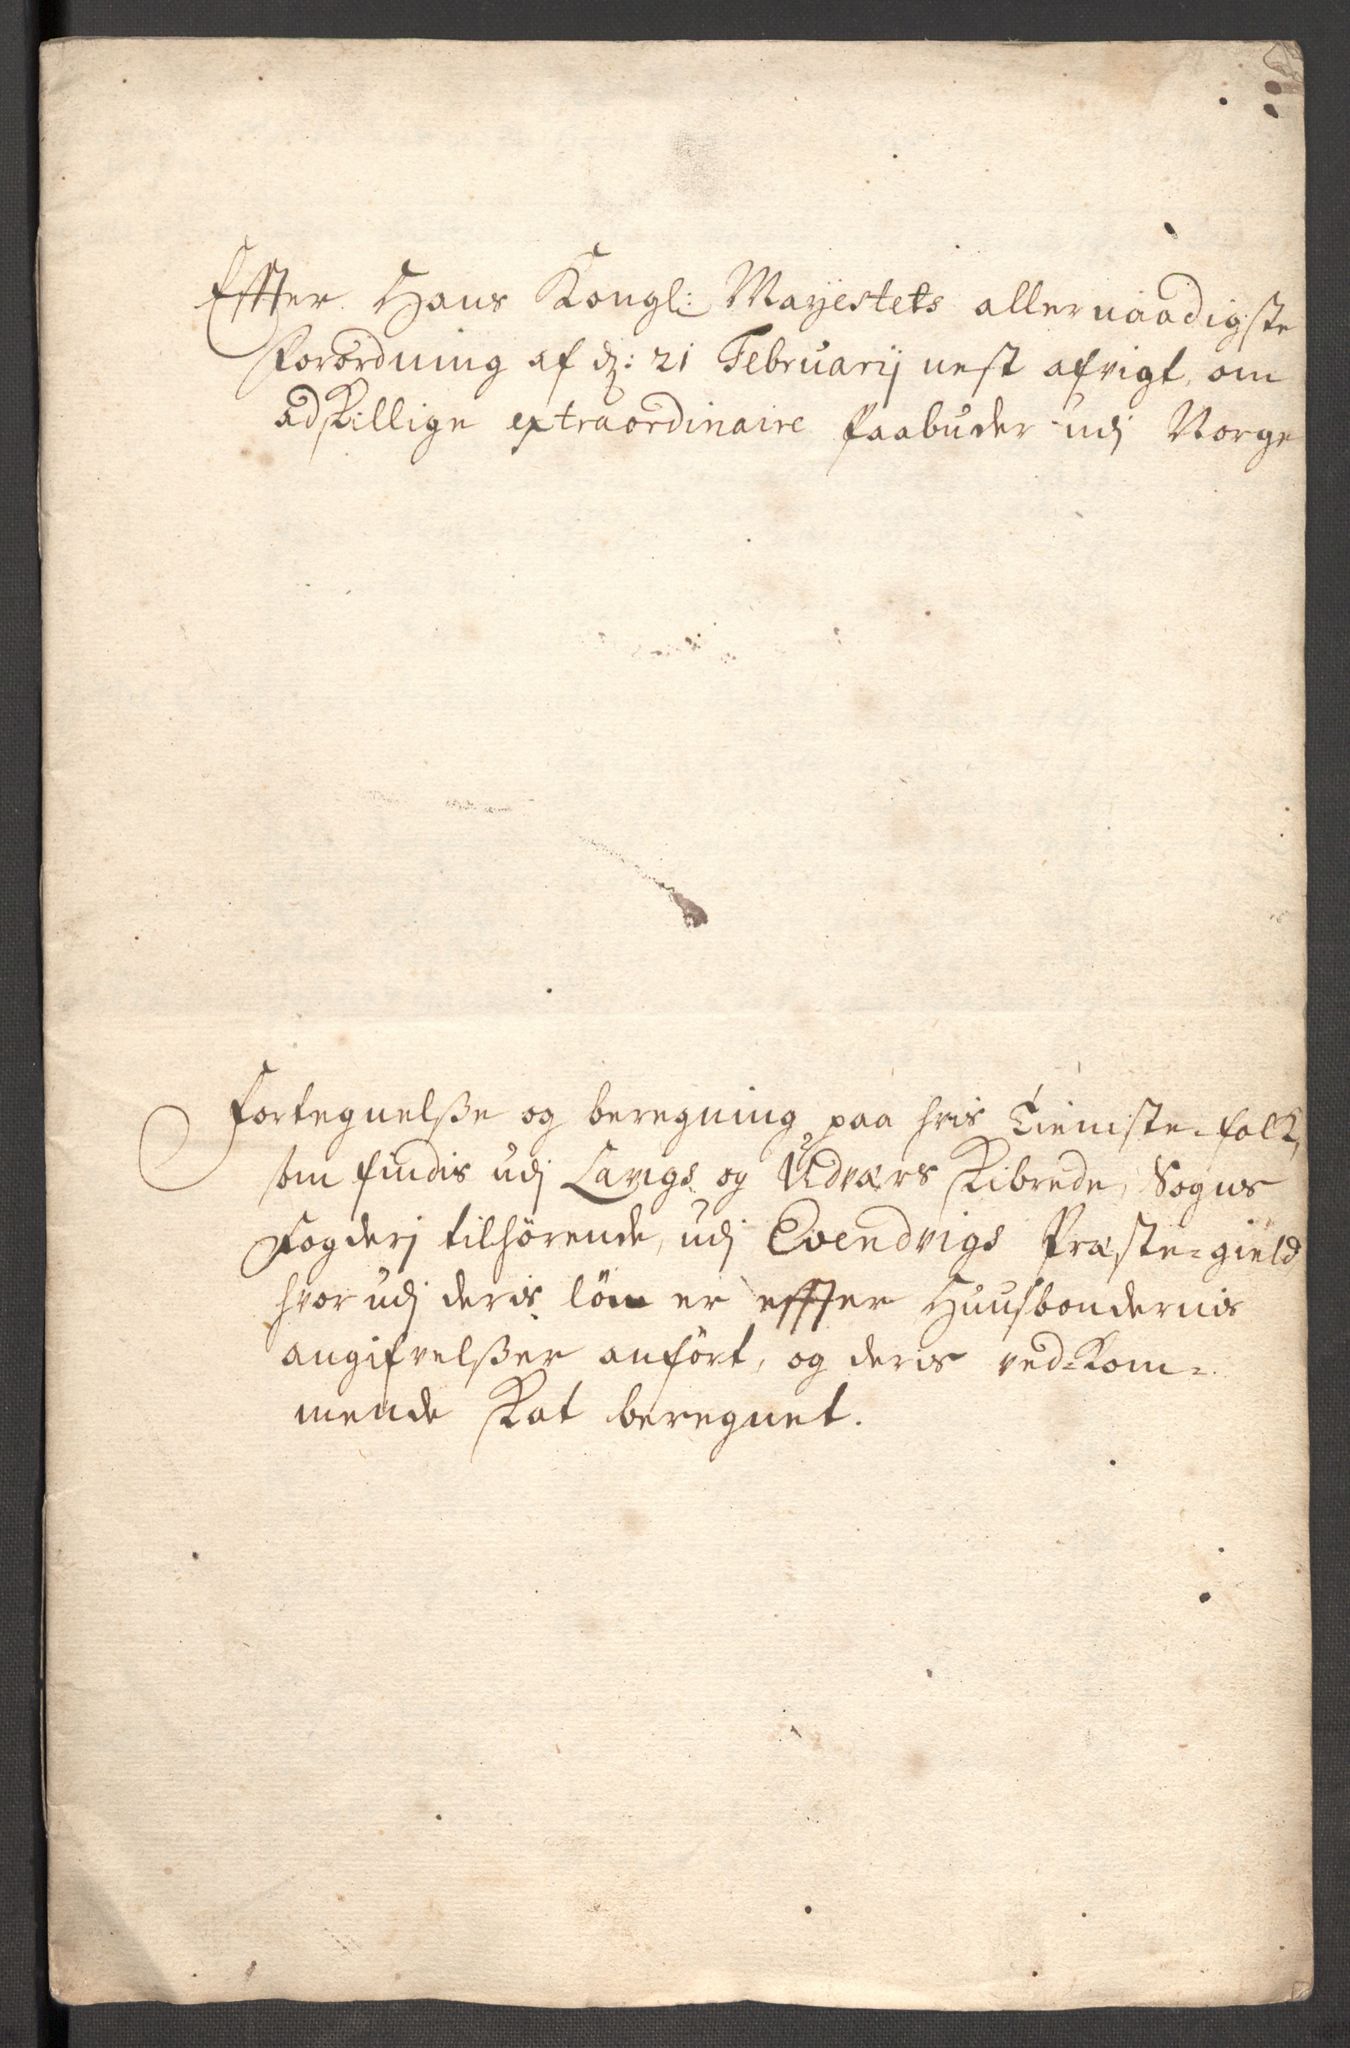 Effter Hans Kongl: Mayestets allernaadigste
Forordning af dz: 21 Februarij nest afvigt, om
adskillige extraordinaire Paabuder udj Norge
Fortegnelsse og beregning paa hvis Tieniste-folk,
som findis udj Lavigs og Udværs Skibrede, Sogns
Fogderj tilhörende, udj Evendvigs Præste-gield
hvor udj deris lön er effter Huusbondernis
angifvelsser anfört, og deris ved-kom-
mende Skat beregnet.